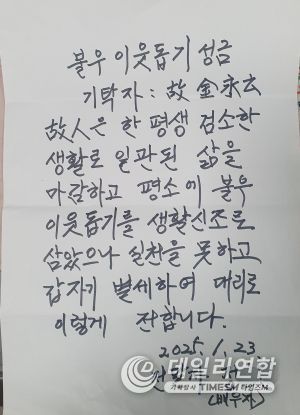 불우 이웃돕기 성금
기탁자: 故 金永玄
故人은 한 평생 검소한
생활로 일관된 삶을
마감하고 평소에 불우
이웃돕기를 생활신조로
삼았으나 실천을 못하고
갑자기 별세하여 대리로
이렇게 전합니다.
2025/1.23
데일리연합
TIMESM 타임즈M
(배우자)